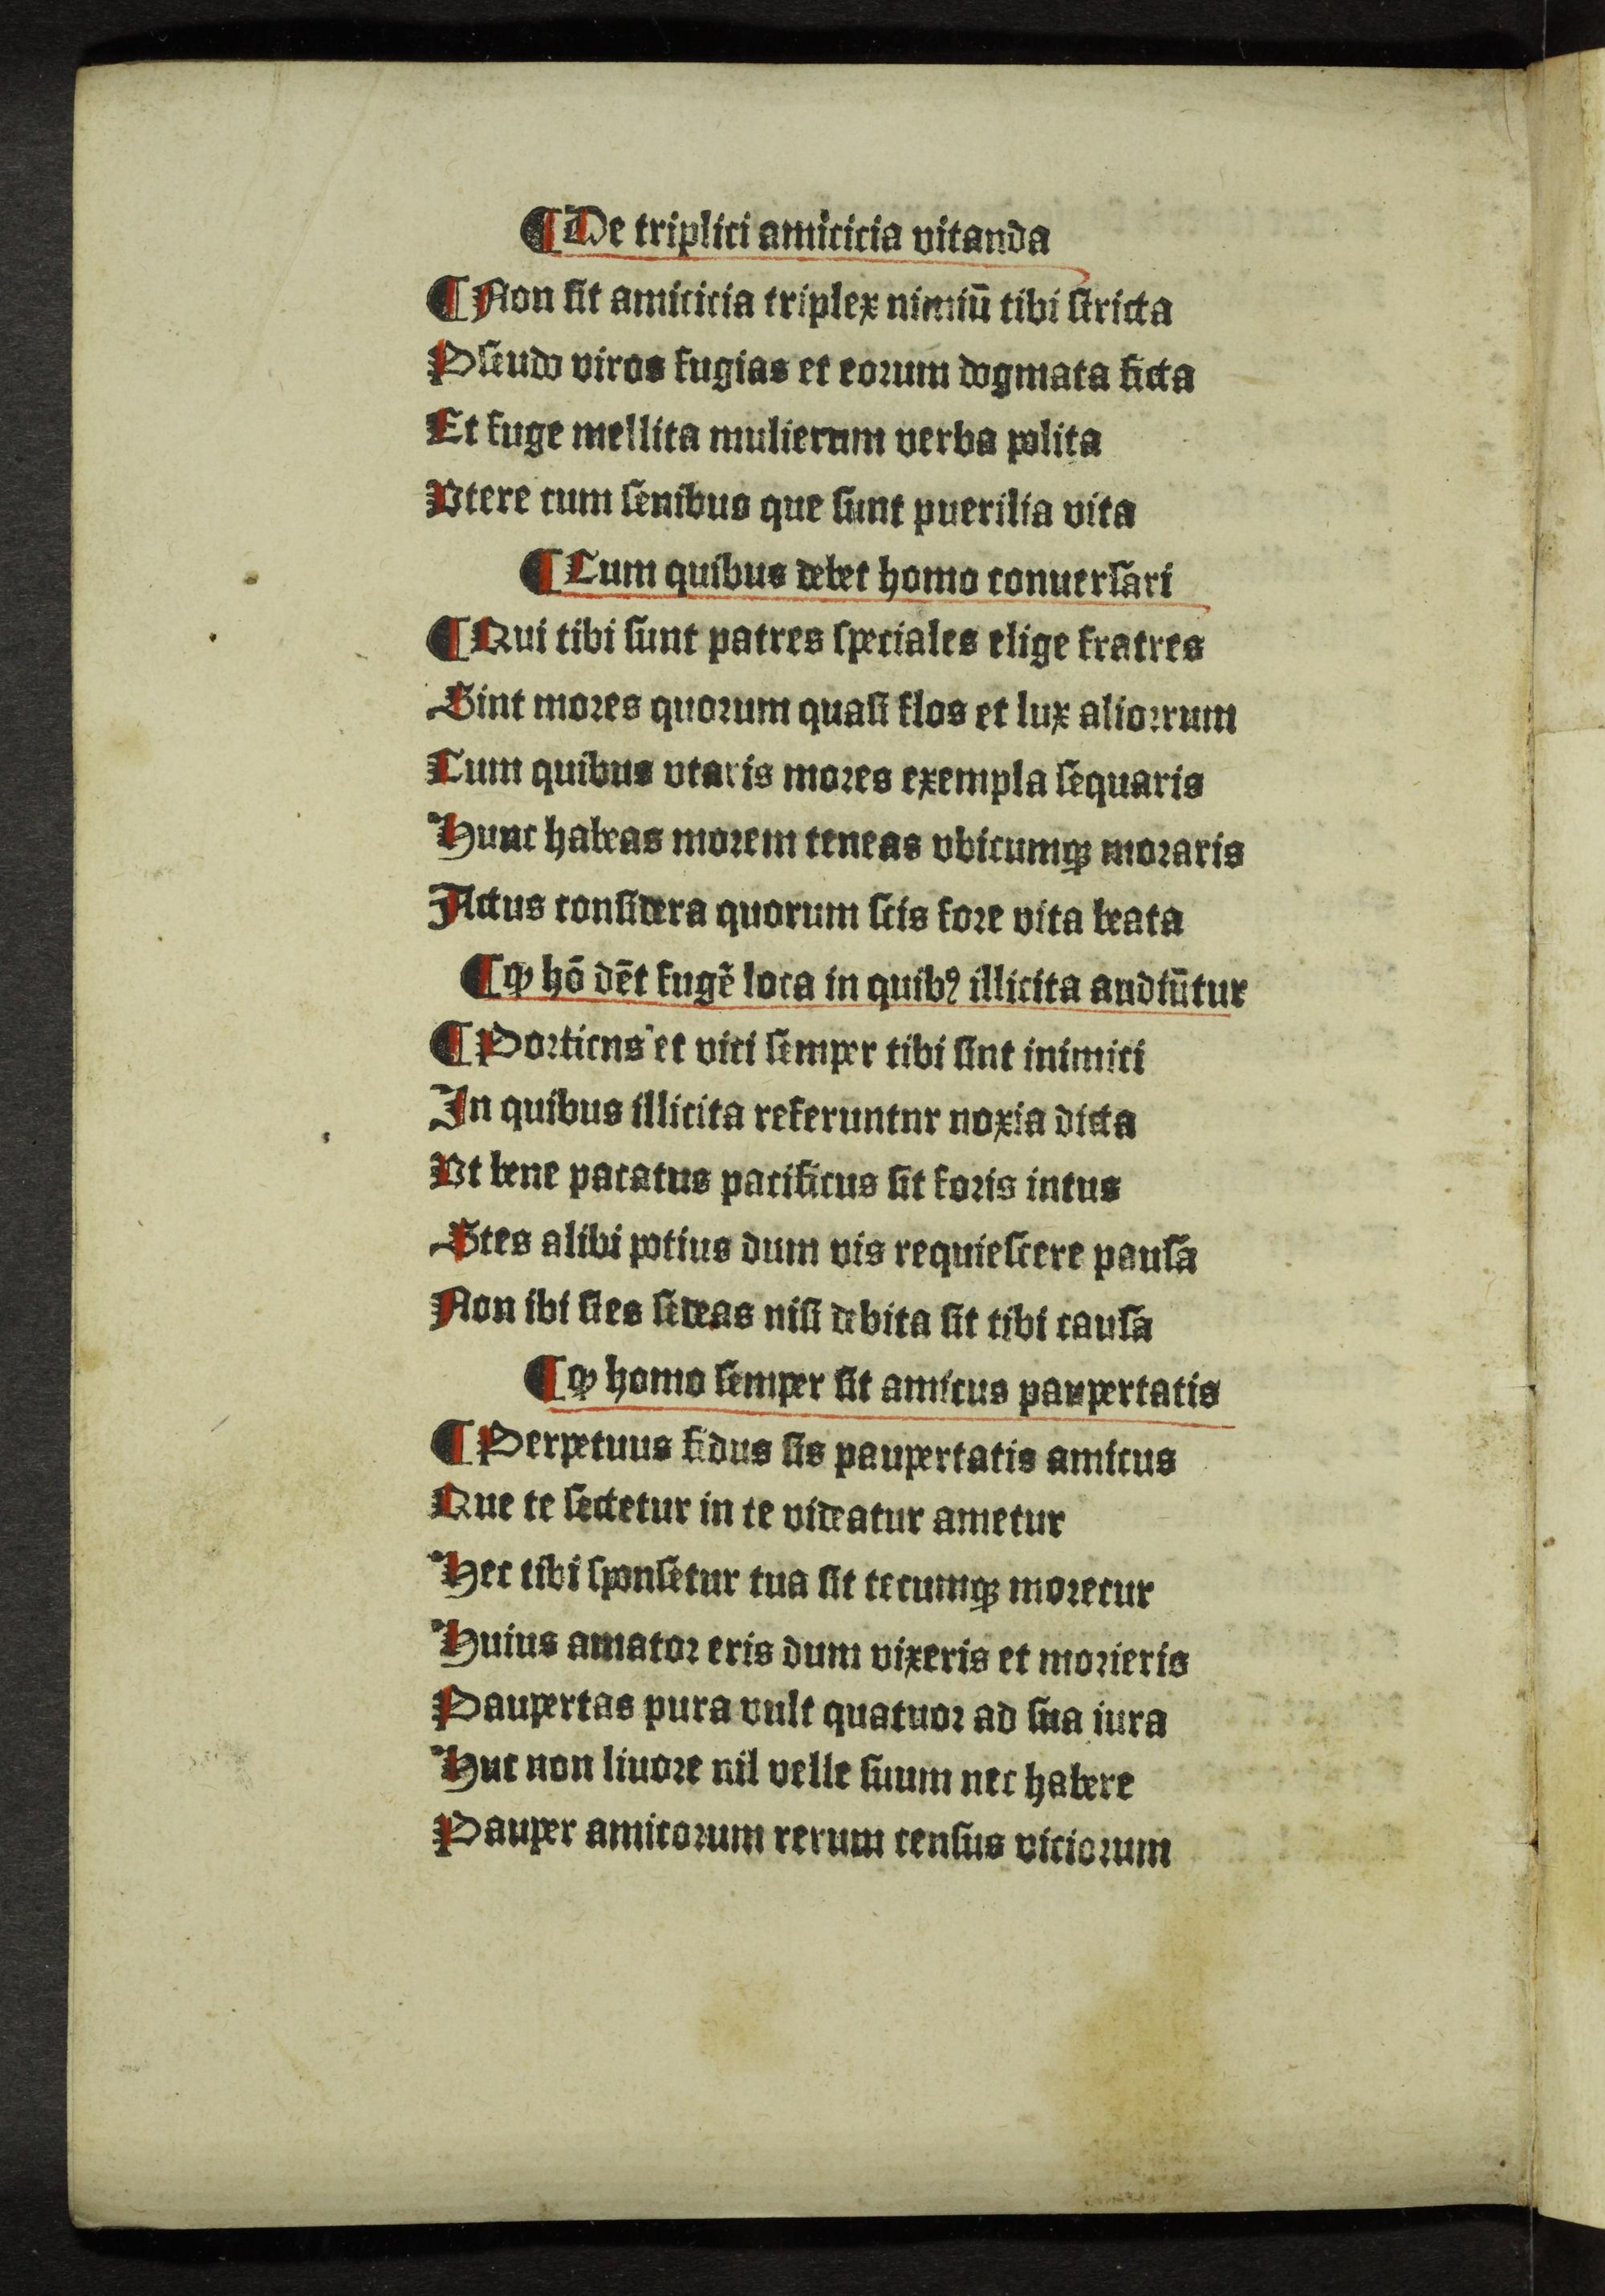 ¶ De triplici amicicia vitanda
¶ Non sit amicicia triplex nimiū tibi stricta
Pseudo viros fugias et eorum dogmata ficta
Et fuge mellita mulierum verba polita
Vtere cum senibus que sunt puerilia vita
¶ Cum quibus debet homo conuersari
¶ Qui tibi sunt patres speciales elige fratres
Sint mores quorum quasi flos et lux aliorrum
Cum quibus vtaris mores exempla sequaris
Hunc habeas morem teneas vbicumqꝫ moraris
Actus considera quorum scis fore vita beata
¶ ꝙ hō dēt fugē loca in quibꝰ illicita audiūtur
¶ Porticns et vici semper tibi sint inimici
In quibus illicita referuntnr noxia dicta
Vt bene pacatus pacificus sit foris intus
Stes alibi potius dum vis requiescere pausa
Non ibi stes sedeas nisi debita sit tibi causa
¶ ꝙ homo semper sit amicus paupertatis
¶ Perpetuus fidus sis paupertatis amicus
Que te sectetur in te videatur ametur
Hec tibi sponsetur tua sit tecumqꝫ moretur
Huius amator eris dum vixeris et morieris
Paupertas pura vult quatuor ad sua iura
Huc non liuore nil velle suum nec habere
Pauper amicorum rerum census viciorum